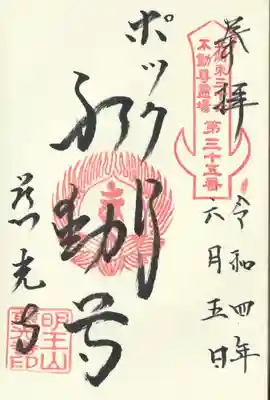 奉拝
令和四年
六月五日
ポックリ
不動尊
慈光寺
関東三十六
不動尊霊場
第三十五番
明王山